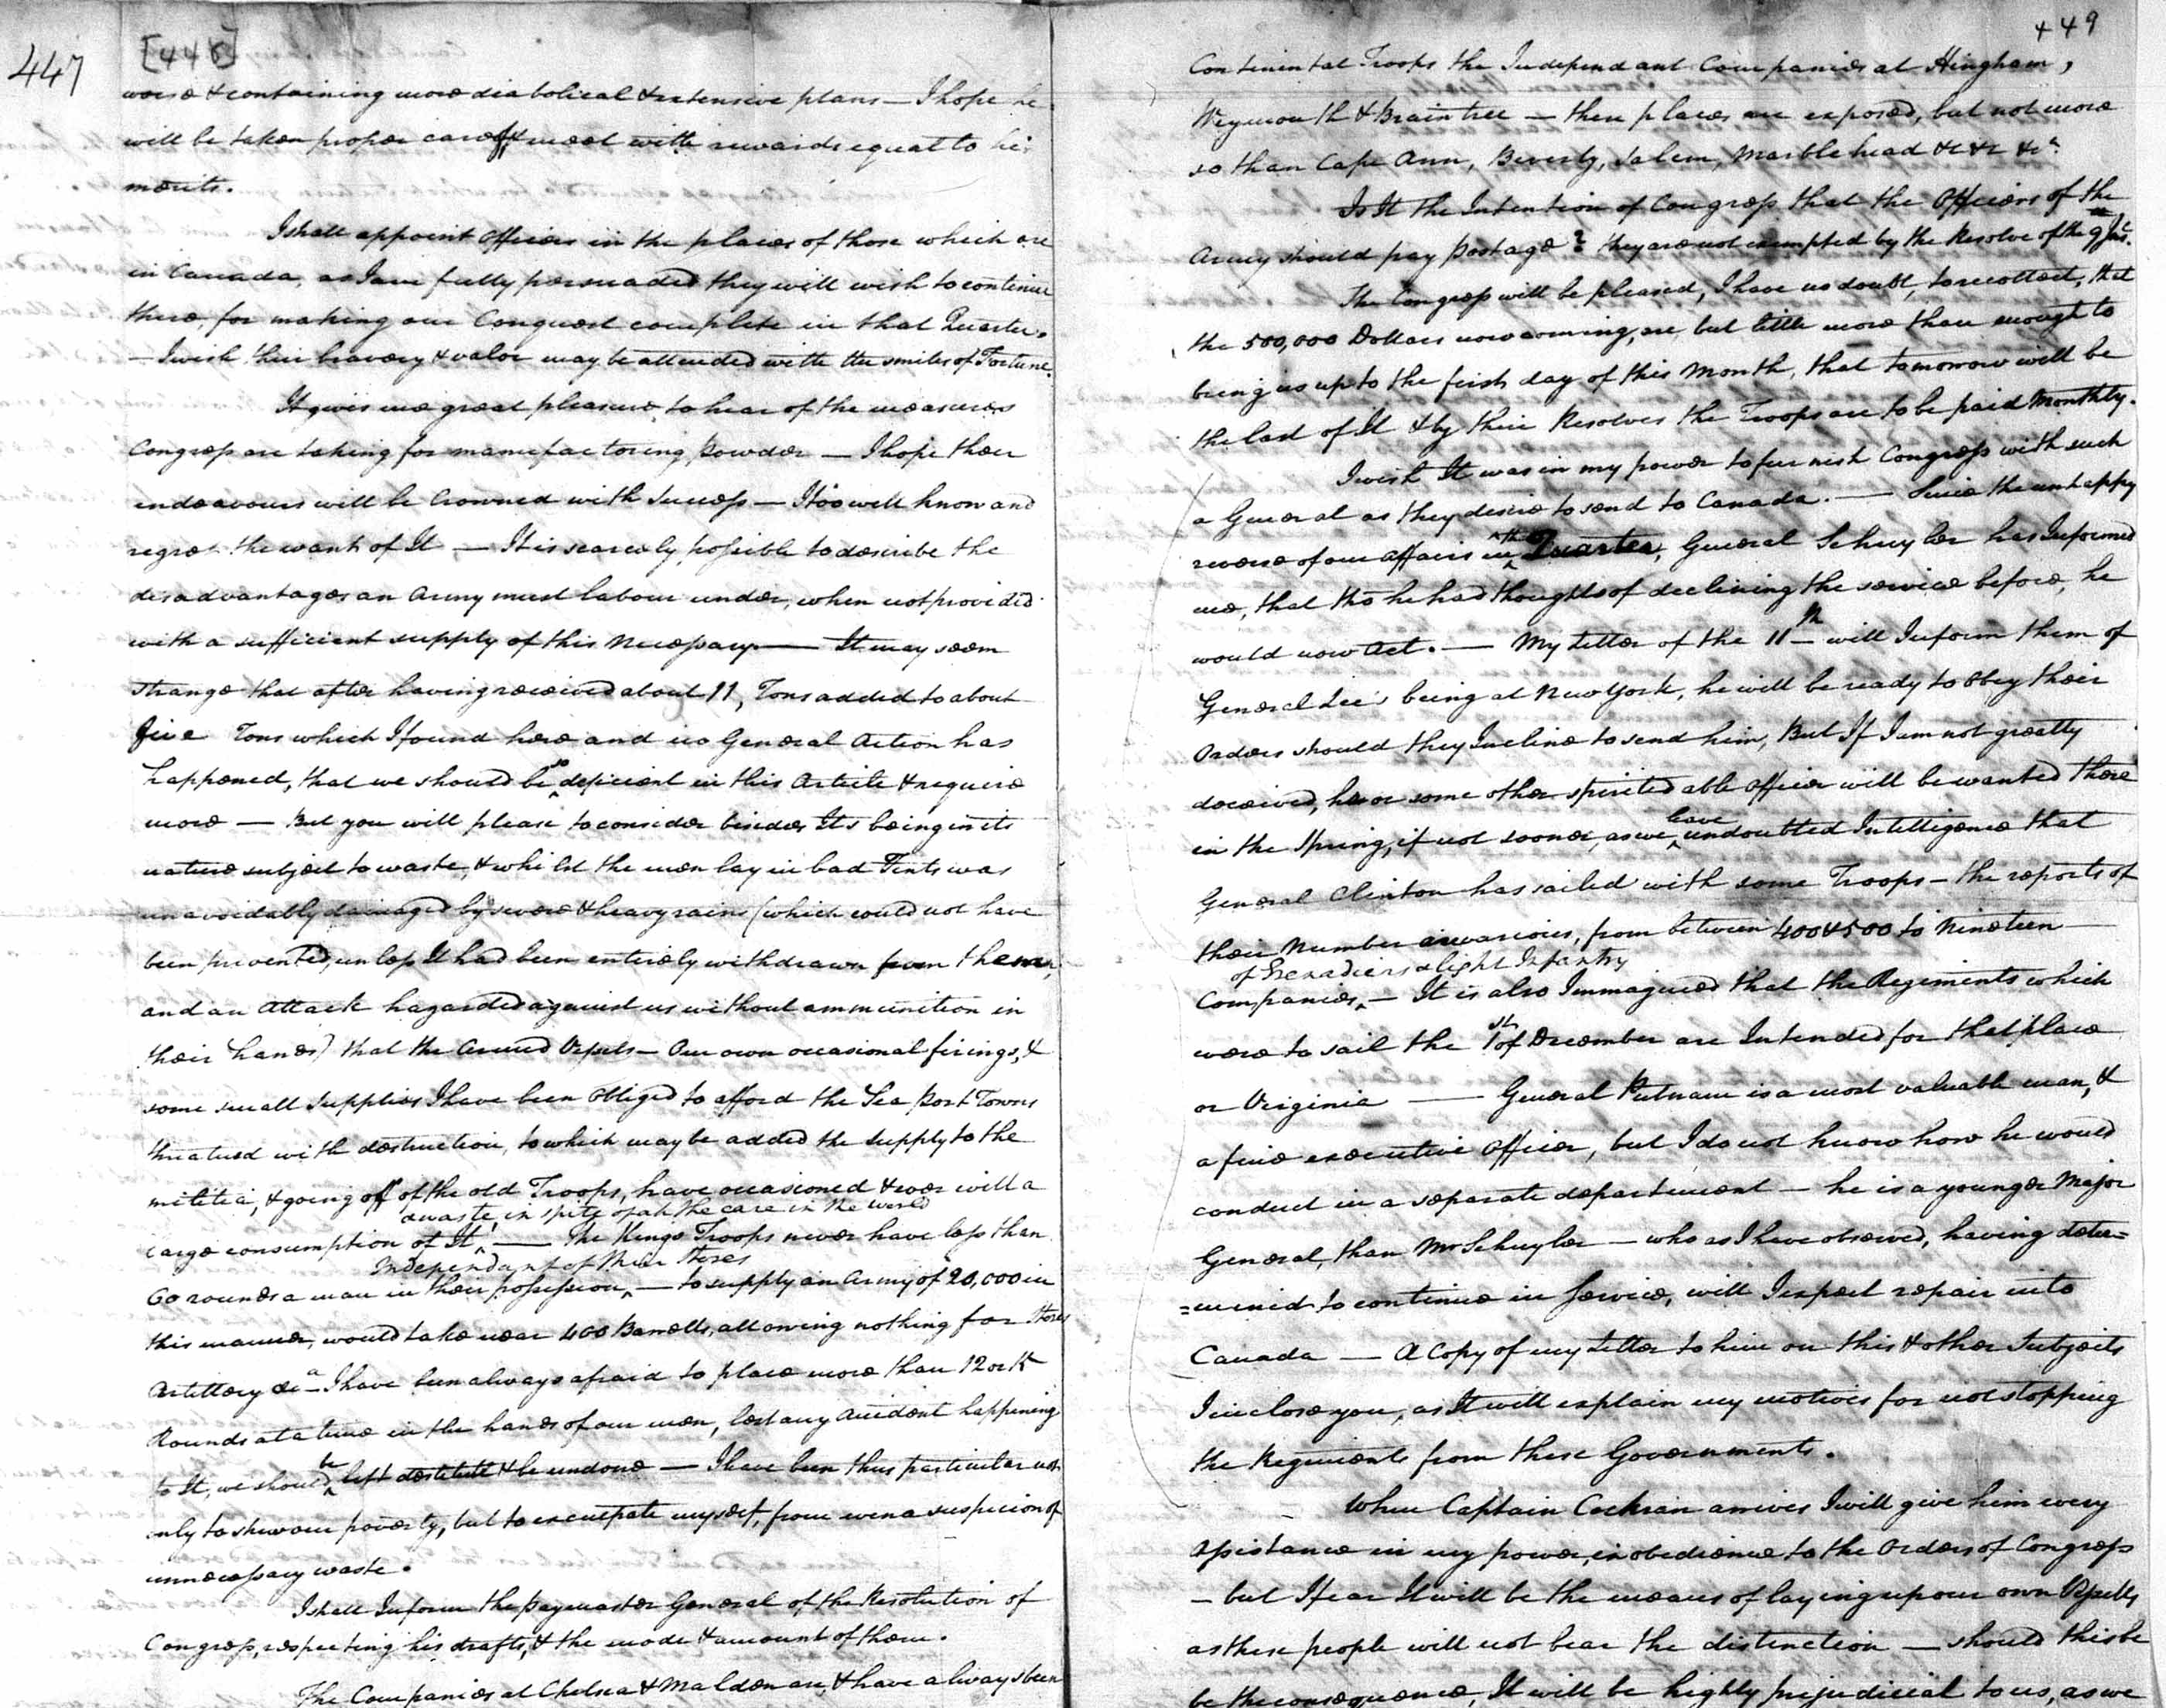 447
[448]
worse & containing more diabolical & extensive plans — I hope he
will be taken proper care of, & meet with rewards equal to his
merits.
I shall appoint officers in the places of those which are
in Canada, as I am fully persuaded they will wish to continue
there, for making our Conquest complete in that Quarter.
— I wish their bravery & valor may be attended with the smiles of Fortune.
It gives me great pleasure to hear of the measures
Congress are taking for manufactoring powder — I hope their
endeavours will be Crowned with Success — I too well know and
regret the want of It — It is scarcely possible to describe the
disadvantages an Army must labour under, when not provided
with a sufficient supply of this Necessary — It may seem
strange that after having received about 11, Tons added to about
five Tons which I found here and no General Action has
happened, that we should be so deficient in this Article & require
more — But you will please to consider besides Its being in its
nature subject to waste, & whilst the men lay in bad Tents was
unavoidably damaged by severe & heavy rains (which could not have
been prevented, unless It had been entirely withdrawn from the men,
and an Attack hazarded against us without ammunition in
their hands) that the Armed Vessels — Our own occasional firings, &
some small supplies I have been Obliged to afford the Sea port Towns
threatned with destruction, to which may be added the Supply to the
militia, & going off of the old Troops, have occasioned & ever will a
a waste, in spite of all the care in the world
large consumption of It, — The Kings Troops never have less than
Independant of their Stores
60 rounds a man in their possession, — to supply an Army of 20,000 in
this manner, would take near 400 Barrells, allowing nothing for Stores
Artillery &ca — I have been always afraid to place more than 12 or 15
Rounds at a time in the hands of our men, lest any Accident happening
to It, we should be left destitute & be undone — I have been thus particular not
only to shew our poverty, but to exculpate myself, from even a suspicion of
unnecessary waste.
I shall Inform the paymaster General of the Resolution of
Congress, respecting his drafts, & the mode & amount of them.
The Companies at Chelsea & Malden are, & have always been
449
Continental Troops the Independant Companies at Hingham,
Weymouth & Braintree — these places are exposed, but not more
so than Cape Ann, Beverly, Salem, Marblehead &c &c &ca
Is It the Intention of Congress that the Officers of the
Army should pay postage? they are not exempted by the Resolve of the 9th Inst.
The Congress will be pleased, I have no doubt, to recollect, that
the 500,000 Dollars now coming, are but little more than enough to
bring us up to the first day of this Month, that tomorrow will be
the last of It & by their Resolves the Troops are to be paid Monthly.
I wish It was in my power to furnish Congress with such
a General as they desire to send to Canada. — Since the unhappy
reverse of our Affairs in th Quarter, General Schuyler has Informed
me, that tho he had thoughts of declining the service before, he
would now Act. — My Letter of the 11th will Inform them of
General Lee's being at New York, he will be ready to Obey their
Orders should they Incline to send him, But If I am not greatly
deceived, he or some other spirited able Officer will be wanted there
in the Spring, if not sooner, as we have undoubted Intelligence that
General Clinton has sailed with some Troops — the reports of
their Number are various, from between 400 & 500 to Nineteen
of Grenadiers & light Infantry
Companies, — It is also Immagined that the Regiments which
were to sail the 1st of December are Intended for that place
or Virginia — General Putnam is a most valuable man, &
a fine executive Officer, but I do not know how he would
conduct in a separate department — he is a younger Major
General, than Mr Schuyler — who as I have observed, having deter=
=mined to continue in Service, will I expect repair into
Canada — A Copy of my Letter to him on this & other Subjects
I inclose you, as It will explain my motives for not stopping
the Regiments from these Governments.
When Captain Cochran arrives I will give him every
Assistance in my power, in obedience to the Orders of Congress
— but I fear It will be the means of laying up our own Vessells
as these people will not bear the distinction — should this be
be the consequence, It will be highly prejudicial to us, as we